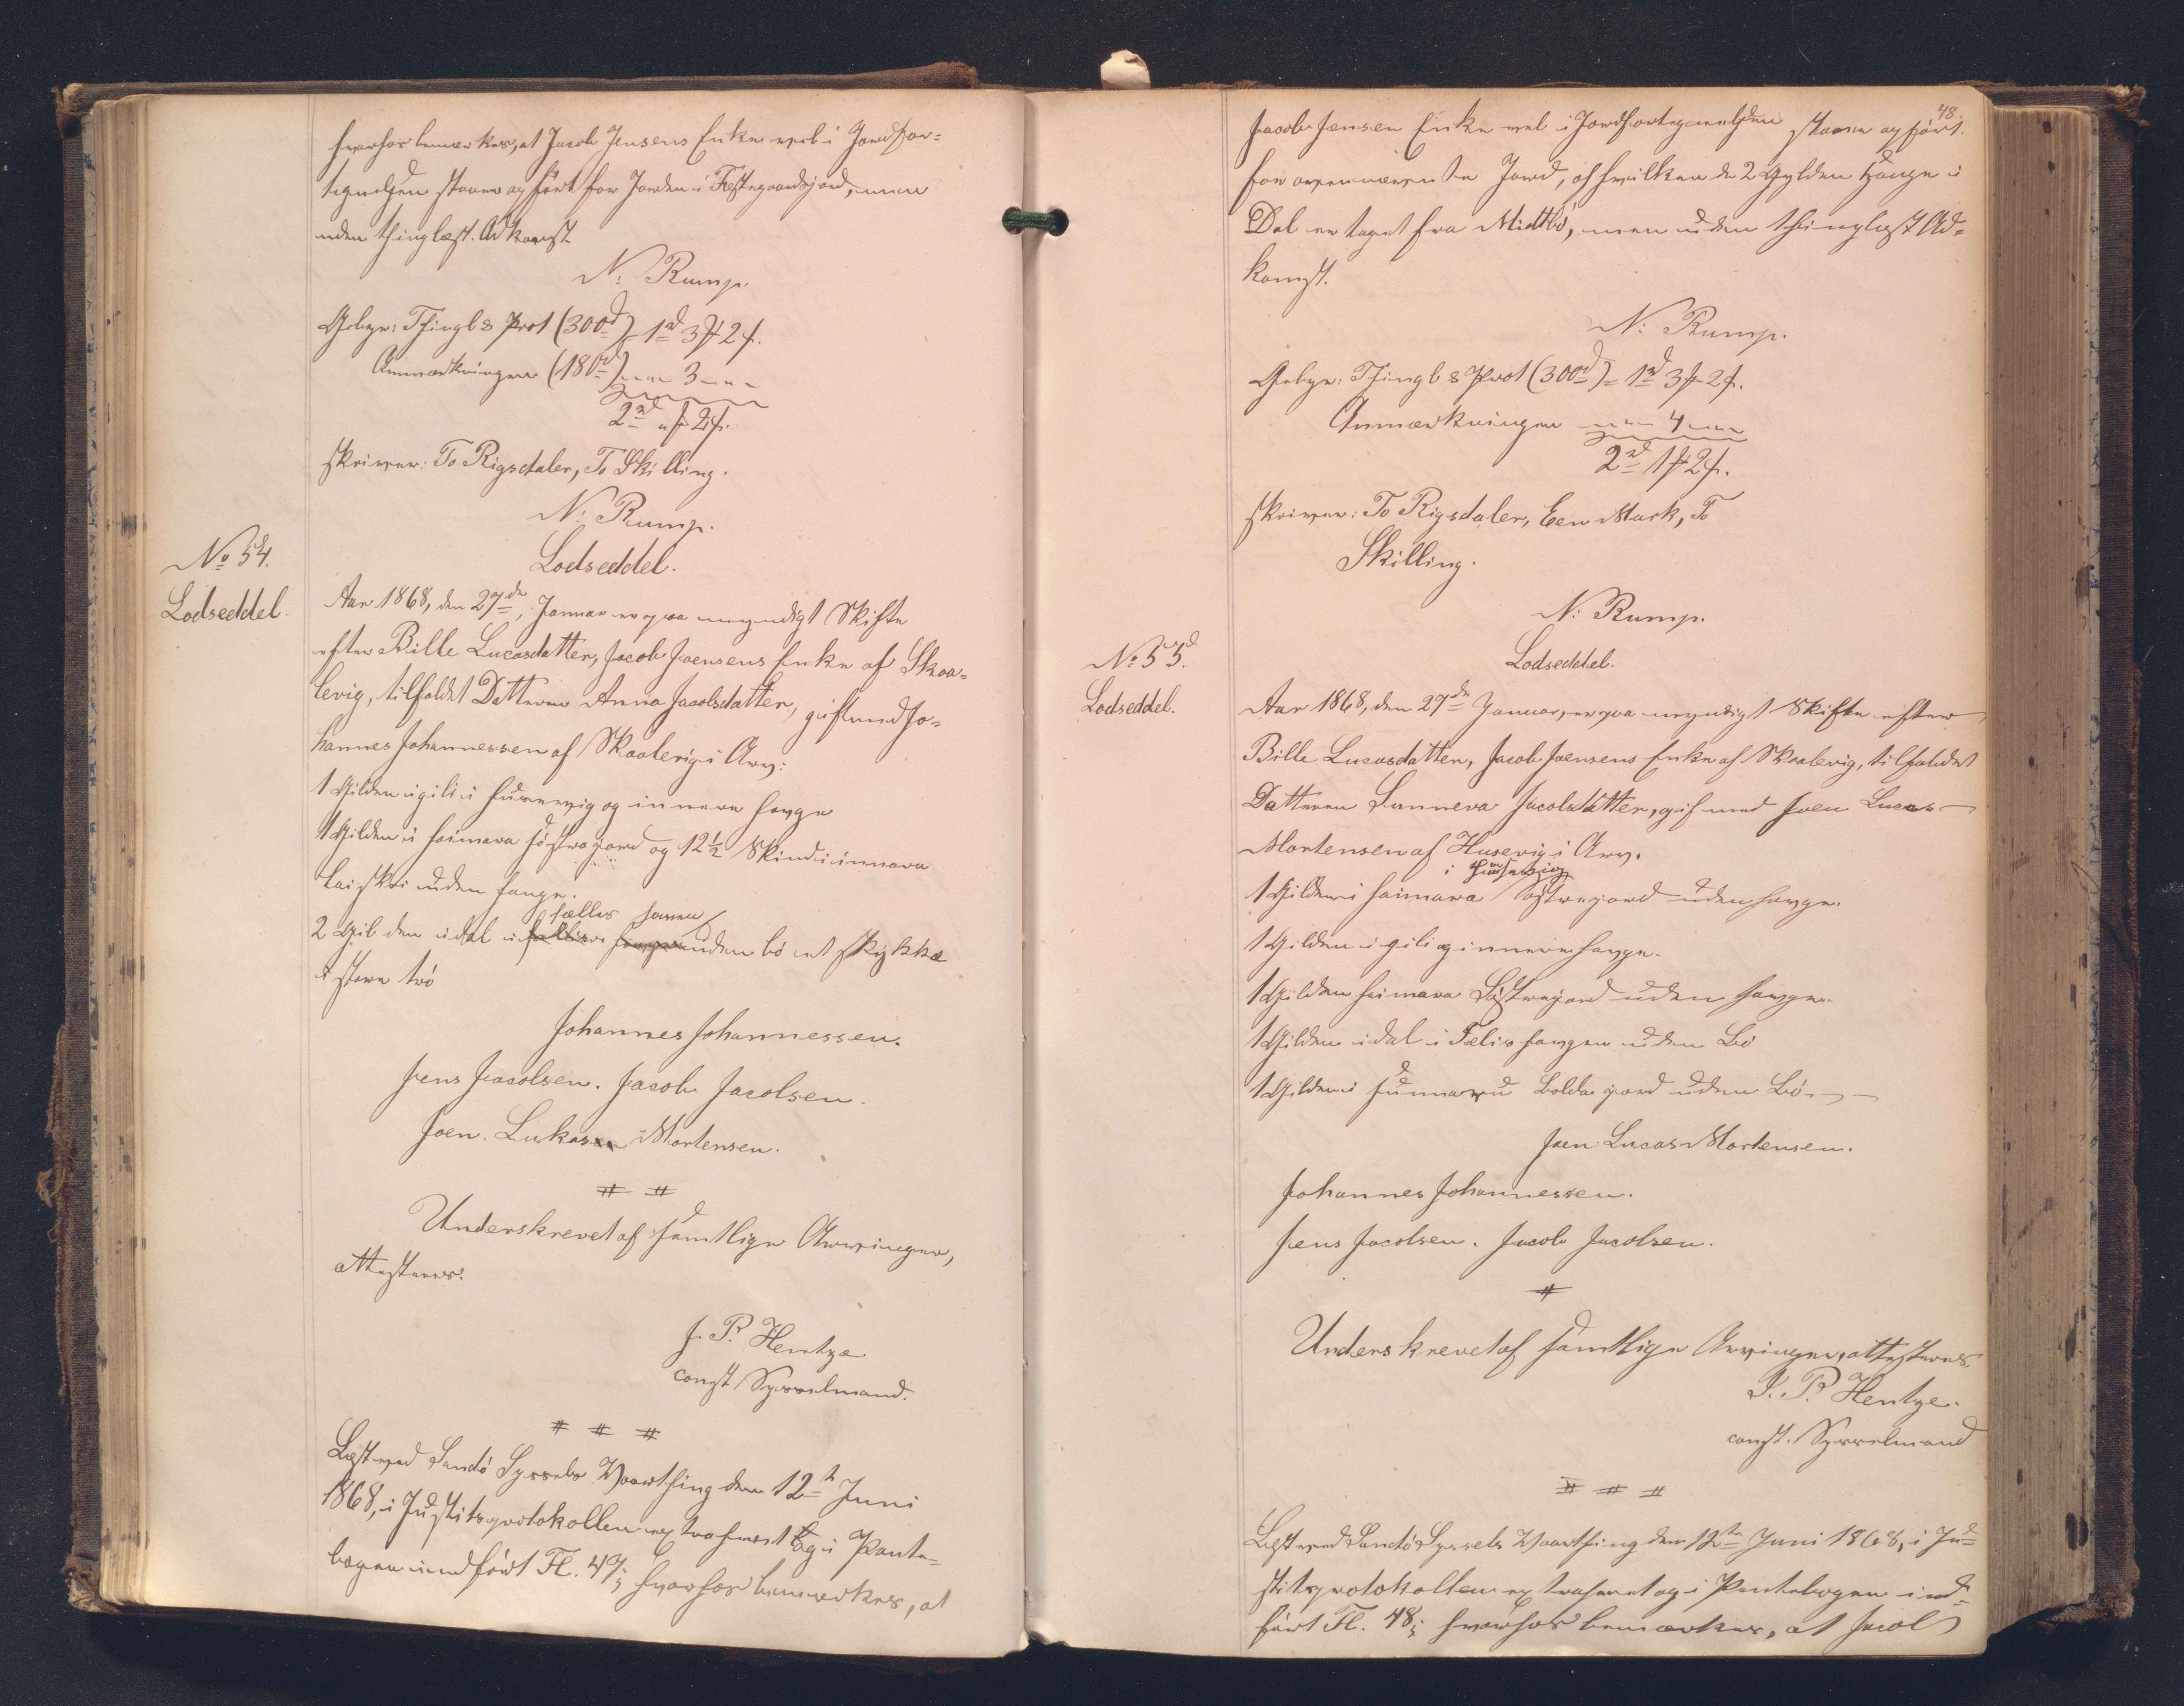 hvorhos bemærkes, at Jacob Jensens Enke vel i Jordfor-
tegnelsen staaer opført for Jorden i Fæstegaardsjord, men
uden thinglæst Adkomst
N: Rump.
Gebyr: Thingl & Prot (300rd) = 1rd 3 # 2 f.
Anmærkninger (180rd) " " " 3 " " "
2rd " # 2 f.
skriver: To Rigsdaler, To Skilling.
N: Rump.
No 54.
Lodseddel.
Lodseddel.
Aar 1868, den 27de, Januar er paa myndigt Skifte
efter Bille Lucasdatter, Jacob Joensens Enke af Skaa-
levig, tilfaldet Datteren Anna Jacobsdatter, gift med Jo-
hannes Johannessen af Skaalevig i Arv:
1 Gilden i gili i Husevig og innara hauge
1 Gilden i haimara Jøstragjord og 12½ Skind i innara
Laiskri uden hauge.
fælles haven
2 Gilden i dal i uden bö et stykke
store trö
Johannes Johannessen.
Jens Jacobsen. Jacob Jacobsen.
Joen Lukas Mortensen.
# #
Underskrevet af samtlige Arvinger,
attesteres.
J. P. Hentze
const Sysselmand.
# # #
Læst ved Sandö Syssels Vaarthing den 12te Juni
1868, i Justitsprotokollen extraheret og i Pante-
bogen indført Fl. 47; hvorhos bemærkes, at
48.
Jacob Jensen Enke vel i Jordfortegnelsen staaer opført
for ovennævnte Jord, af hvilken de 2 Gylden Hauge i
Dal er taget fra Midtbö, men uden thinglæst Ad-
komst.
N: Rump.
Gebyr: Thingl & Prot (300rd) = 1rd 3 # 2 f.
Anmærkningen " " " 4 " " "
2rd 1 # 2 f.
skriver: To Rigsdaler, Een Mark, To
Skilling.
N: Rump.
No 55.
Lodseddel.
Lodseddel.
Aar 1868, den 27de Januar, er paa myndigt Skifte efter
Bille Lucasdatter, Jacob Joensens Enke af Skaalevig, tilfaldet
Datteren Sunneva Jacobsdatter, gif med Joen Lucas
Mortensen af Husevig i Arv.
i Husevig
1 Gilden i haimara Østragjord uden hauge.
1 Gilden i gili og innara hauge.
1 Gilden haimara Jøstragjord uden hauge.
1 Gilden i dal i Fælis haugen uden Bö
1 Gilden i Bolda gjord uden Bö.
Joen Lucas Mortensen.
Johannes Johannessen.
Jens Jacobsen. Jacob Jacobsen.
#
Underskrevet af samtlige Arvinger, attesteres.
J. P. Hentze.
const. Sysselmand
# # #
Læst ved Sandö Syssels Vaarthing den 12te Juni 1868, i Ju-
stitsprotokollen extraheret og i Pantebogen ind-
ført Fl. 48; hvorhos bemærkes, at Jacob